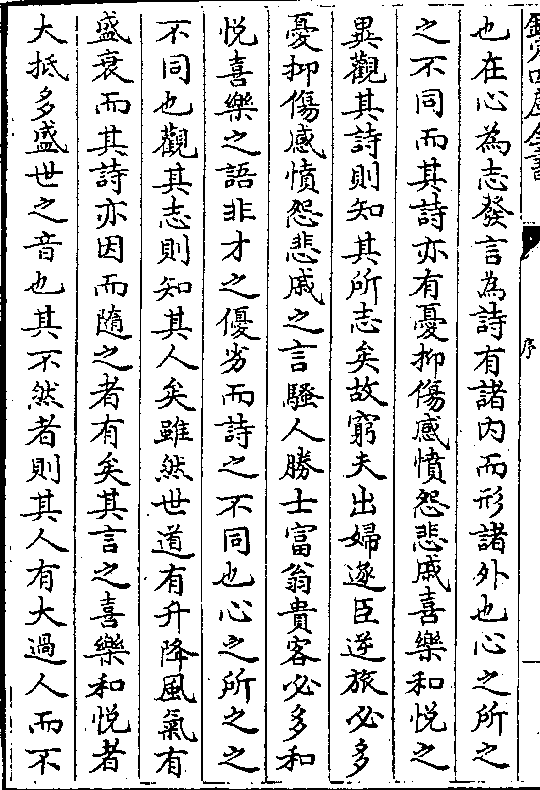 欽定四庫全書
序
也在心為志發言為詩有諸内而形諸外也心之所之
之不同而其詩亦有憂抑傷感憤怨悲戚喜樂和悦之
異觀其詩則知其所志矣故窮夫出婦逐臣逆旅必多
憂抑傷感憤怨悲戚之言騷人勝士富翁貴客必多和
悦喜樂之語非才之優劣而詩之不同也心之所之之
不同也觀其志則知其人矣雖然世道有升降風氣有
盛衰而其詩亦因而隨之者有矣其言之喜樂和悦者
大抵多盛世之音也其不然者則其人有大過人而不